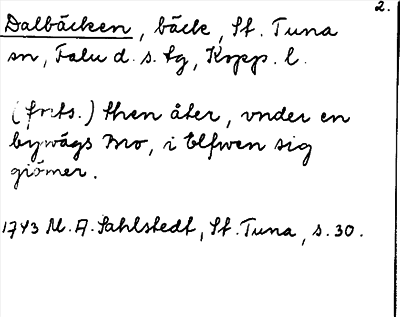 2.
Dalbäcken, bäck, St. Tuna
sn, Falu d. s. tg, Kopp. l.
(forts.) then åter, vnder en
bywägs Bro, i Elfwen sig
giömer.
1743 M. A. Sahlstedt, St. Tuna, s. 30.